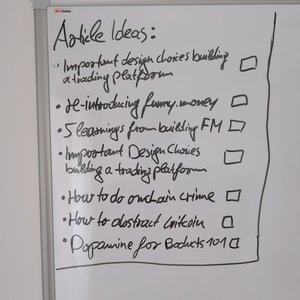 Article Ideas:
• Important design choices building
a trading platform
• re-introducing funny.money
• 5 learnings from building FM
• Important Design Choices
building a trading platform
• How to do onchain crime
• How to abstract
• Dopamine for 101